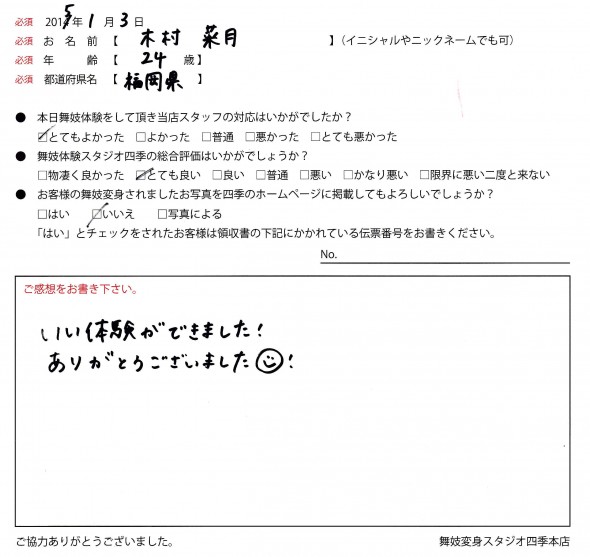 必須 2015年1月3日
必須 お名前【 木村 菜月 】(イニシャルやニックネームでも可)
必須 年齢【 24 歳】
必須 都道府県名【 福岡県 】
● 本日舞妓体験をして頂き当店スタッフの対応はいかがでしたか？
☑とてもよかった □よかった □普通 □悪かった □とても悪かった
● 舞妓体験スタジオ四季の総合評価はいかがでしょうか？
□物凄く良かった ☑とても良い □良い □普通 □悪い □かなり悪い □限界に悪い二度と来ない
● お客様の舞妓変身されましたお写真を四季のホームページに掲載してもよろしいでしょうか？
□はい ☑いいえ □写真による
「はい」とチェックをされたお客様は領収書の下記にかかれている伝票番号をお書きください。
No.
ご感想をお書き下さい。
いい体験ができました！
ありがとうございました☺！
ご協力ありがとうございました。 舞妓変身スタジオ四季本店